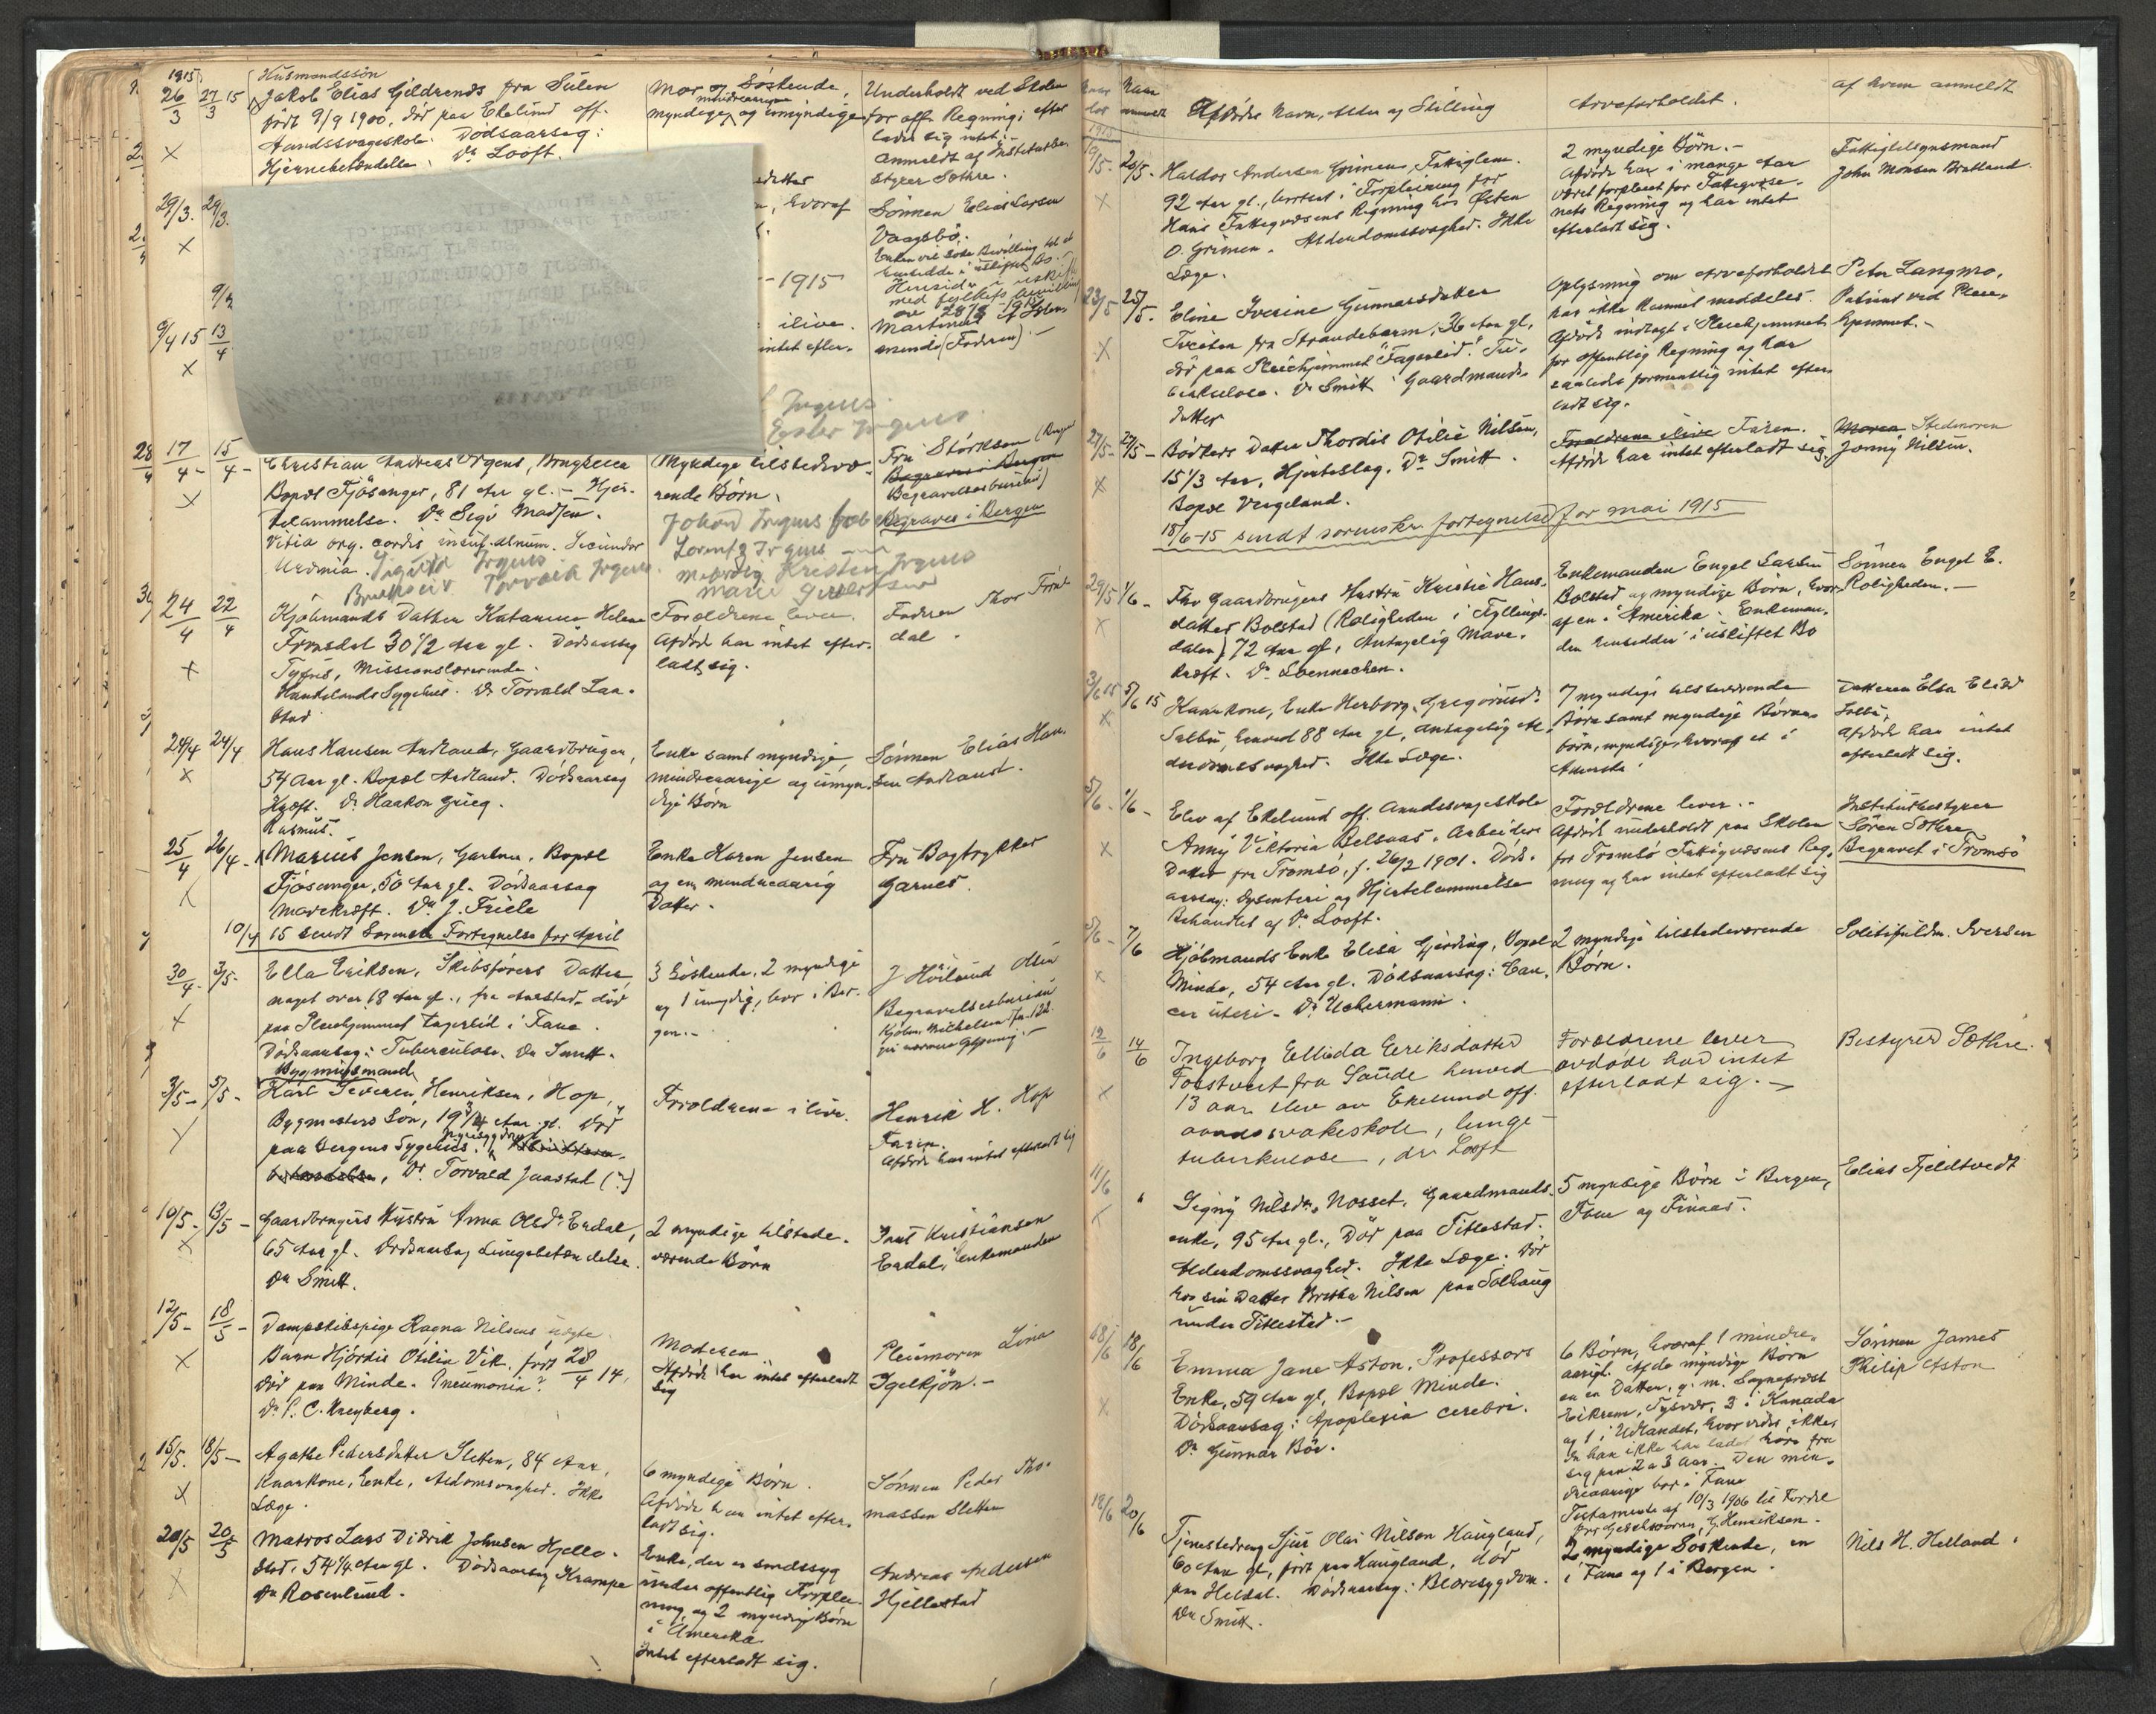 1915
26/3 27/3 15
Husmandssön
Jakob Elias Gildrenes fra Sulen
født 9/9 1900, död paa Ekelund off.
Aandssvageskole. Dödsaarsag:
Hjernebetændelse. Dr Looft.
Mor og Söskende,
myndige, mindreaarige og umyndige
Underholdt ved Skolen
for off. Regning; efter
ladt sig intet.
Anmeldt af Institutbe
styrer Söthre.
29/3. 29/3.
hvoraf
1915
Sönnen Elias Larsen
Vaagsbö.
Enken vil söke Bevilling til at
hensidde i uskiftet Bo.
9/4 15 13/4
ilive.
intet efter-
(Faderen)
Irgens
Ester Irgens
17/4- 15/4-
Christian Andreas Irgens, Brugseier
Bopæl Fjösanger, 81 Aar gl. - Hjer-
telammelse. Dr Sigv Madsen.
Vitia org. cordis insuf.
Uræmia. Sigurd Irgens
Brukseier Torvald Irgens.
Myndige tilstedevæ-
rende Börn.
Johan Irgens
Lorentz Irgens
Kristen Irgens
Marie
Fru Störksen (Bergens
Begravelsesbureau)
Begraves i Bergen
24/4 22/4
Kjöbmands Datter Katarina Helene
Frönsdal 30 1/2 Aar gl. Dödsaarsag
Tyfus, Missionslærerinde.
Haukelands Sygehus. Dr Torvald Laa-
stad
Forældrene lever.
Afdöde har intet efter-
ladt sig.
Faderen Thor Fröns
dal.
24/4 24/4
Hans Hansen Audland, Gaardbruger,
54 Aar gl. Bopæl Audland. Dödsaarsag
Kræft. Dr Haakon Grieg.
Enke samt myndige,
mindreaarige og umyn-
dige Börn
Sönnen Elias Han
sen Audland.
25/4 26/4-
Rasmus.
Marius Jensen, Gartner, Bopæl
Fjösanger, 50 Aar gl. Dödsaarsag
Mavekræft. Dr J. Friele
Enke Karen Jensen
og en mindreaarig
Datter.
Fru Bogtrykker
Garnes.
10/4 15 sendt Sorensk Fortegnelse for April
30/4- 3/5-
Ella Eriksen, Skibsförers Datter,
noget over 18 Aar gl., fra Aarstad död
paa Pleiehjemmet Fagerlid i Fana.
Dödsaarsag: Tuberculose. Dr Smitt.
3 Söskende, 2 myndige
og 1 umyndig, bor i Ber-
gen.-
J Hvilund Olsen
Begravelsesbureau
3/5- 5/5-
Bygningsmand
Karl Severin Henriksen, Hop,
Bygmesters Sön, 19 3/4 Aar gl. Död
paa Bergens Sygehus.
Dr. Torvald Jaastad (?)
Forældrene ilive.
Henrik H. Hop
Faren.
Afdöde har intet efterladt sig
10/5- 13/5-
Gaardbrugers Hustru Anna Olsdr Erdal,
65 Aar gl. Dödsaarsag Lungebetændelse.
Dr Smitt.
2 myndige tilstede-
værende Börn
Knut Kristiansen
Erdal, Enkemanden
12/5- 18/5-
Dampskibspige Ragna Nilsens uægte
Barn Hjördis Otilia Vik. født 28/4 14,
död paa Minde. Pneumonia?
Dr P. C. Kreyberg.
Moderen
Afdöde har intet efterladt
sig
Pleiemoren Lina
Igelkjön.-
15/5. 18/5-
Agathe Pedersdatter Sletten, 84 Aar,
Kaarkone, Enke, Aldomsvaghed. Ikke
Læge.
6 myndige Börn.
Afdöde har intet efter-
ladt sig.
Sönnen Peder Tho-
massen Sletten
20/5 20/5
Matros Lars Didrik Johnsen Hjelle-
stad, 54 1/4 Aar gl. Dödsaarsag Krampe
Dr Rosenlund.
Enke, der er sindssyg
under offentlig Forplei-
ning, og 2 myndige Börn
i Amerika.
Intet efterladt sig.
Andreas Andersen
Hjellestad
Naar död
Naar anmeldt
Afdödes Navn, Alder og Stilling
Arveforholdet.
af hvem anmeldt
1915
19/5- 20/5-
Haldor Andersen Grimen, Fattiglem.
92 Aar gl., bortsat i Forpleining for
Haus Fattigvæsens Regning hos Östen
O. Grimen. Alderdomssvaghed. Ikke
Læge.
2 myndige Börn.-
Afdöde har i mange Aar
været forpleiet for Fattigvæse-
nets Regning og har intet
efterladt sig.
Fattigtilsynsmand
John Monsen Bratland.
23/5 25/5.
Eline Iverine Gunnarsdatter
Tveiten fra Strandebarm, 36 Aar gl,
död paa Pleiehjemmet "Fagerlid". Tu-
berkulose. Dr Smitt. Gaardmands-
datter
Oplysning om Arveforholdet
har ikke kunnet meddeles.
Afdöde indlagt i Pleiehjemmet
for offentlig Regning og har
saaledes formentlig intet efter-
ladt sig.
Peter Langmo,
Patient ved Pleie-
hjemmet.-
27/5- 27/5-
Bödkers Datter Thordis Otilie Nilsen,
15 1/3 Aar, Hjerteslag. Dr Smitt.
Bopæl Vergeland.
Forældrene ilive Faren.
Afdöde har intet efterladt sig.
Moren Stedmoren
Jonny Nilsen.
18/6-15 sendt sorenskr. fortegnelse for mai 1915
29/5 1/6-
Fhv Gaardbrugers Hustru Kristie Hans-
datter Bolstad (Roligheden i Fyllings-
dalen) 72 Aar gl., Antagelig Mave-
kræft. Dr Loennechen.
Enkemanden Engel Larsen
Bolstad og myndige Börn, hvor-
af en i Amerika. Enkeman-
den hensidder i uskiftet Bo
Sönnen Engel E.
Roligheden.-
3/6 15 5/6 15
Kaarkone, Enke Herborg Gregoriusdr
Sælbu, henved 88 Aar gl, antagelig Al-
derdomssvaghed. Ikke Læge.
7 myndige tilstedeværende
Börn samt myndige Börne-
börn, myndige, hvoraf et i
Amerika.
Datteren Elsa Elisa
Sælbu,
Afdöde har intet
efterladt sig.
5/6-
Elev af Ekelund off. Aandssvageskole
Anny Viktoria Belsaas, Arbeiders
Datter fra Tromsö, f. 26/2 1901. Döds-
aarsag: Dysenteri og Hjertelammelse
Behandlet af Dr Looft.
Forældrene lever.-
Afdöde underholdt paa Skolen
for Tromsö Fattigvæsens Reg-
ning og har intet efterladt sig
Institutbestyrer
Sören Söthre
Begravet i Tromsö
5/6- 7/6
Kjöbmands Enke Elisa Gjerding, Bopæl
Minde, 54 Aar gl. Dödsaarsag: Can-
cer uteri. Dr Uchermann.
2 myndige tilstedeværende
Börn.
Politifuldm. Iversen
12/6 14/6
Ingeborg Ellida Eeriksdatter
Forstveit fra Saude henved
13 aar elev av Ekelund off.
aandssvakeskole, lunge-
tuberkulose, dr Looft
Forældrene lever
avdöde har intet
efterladt sig.-
Bestyrer Söthre.
11/6 "
Signy Nilsdr Nosset, Gaardmands-
enke, 95 Aar gl., Död paa Titlestad.
Alderdomssvaghed. Ikke Læge. Död
hos sin Datter Brithe Nilsen paa Solhaug
under Titlestad.-
5 myndige Börn i Bergen,
Fane og Finaas.
Elias Fjeldtvedt
18/6 18/6
Emma Jane Aston, Professors
Enke, 59 Aar gl, Bopæl Minde.
Dödsaarsag: Apoplexia cerebri.
Dr Gunnar Böe.
6 Börn, hvoraf 1 mindre-
aarigt. Af de myndige Börn
er en Datter, g. m. Sogneprest
Eikrem, Tysvær, 3 i Kanada
og 1 i Udlandet, hvor vides ikke,
da han ikke har ladet höre fra
sig paa 2 a 3 Aar. Den min-
dreaarige bor i Fane
Testamente af 10/3 1906 til Fordel
for Geschworne G. Henriksen.
Sönnen James
Philip Aston
18/6 20/6
Tjenestedreng Sjur Olai Nilsen Haugland,
60 Aar gl, født paa Haugland, död
paa Heldal. Dödsaarsag: Blæresygdom.
Dr Smitt.
2 myndige Söskende, en
i Fana og 1 i Bergen.
Nils H. Helland.